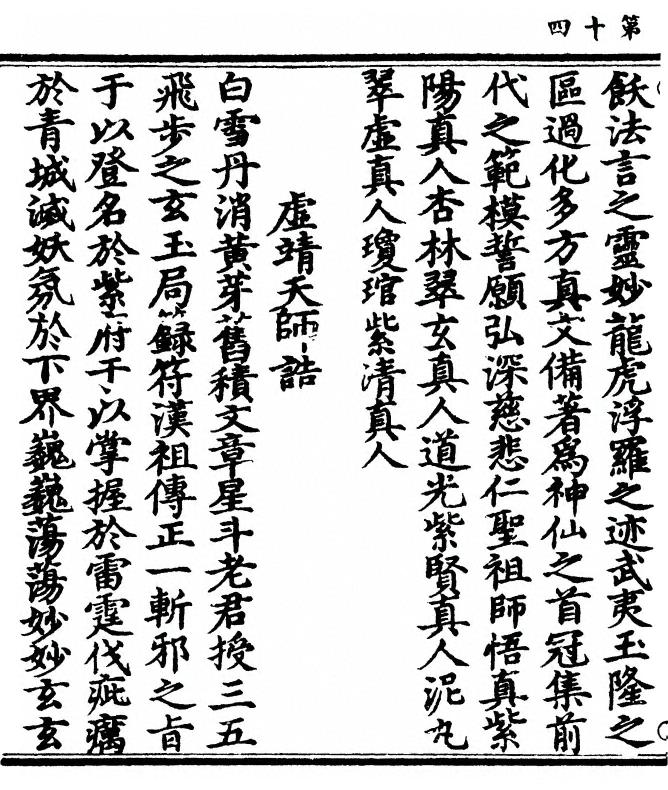 第十四
飫法言之靈妙龍虎浮羅之迹武夷玉隆之
區過化多方真文備著爲神仙之首冠集前
代之範模誓願弘深慈悲仁聖祖師悟真紫
陽真人杏林翠玄真人道光紫賢真人泥丸
翠虛真人瓊琯紫清真人
虛靖天師誥
白雪丹消黃芽舊積文章星斗老君授三五
飛步之玄玉局籙符漢祖傳正一斬邪之旨
于以登名於紫府于以掌握於雷霆伐疵癘
於青城滅妖氛於下界巍巍蕩蕩妙妙玄玄